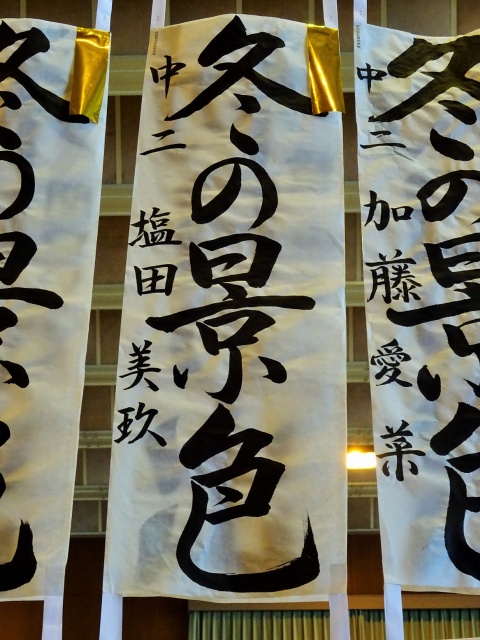 冬の景色
中三
加藤愛菜
冬の景色
中二
塩田美玖
冬の景色